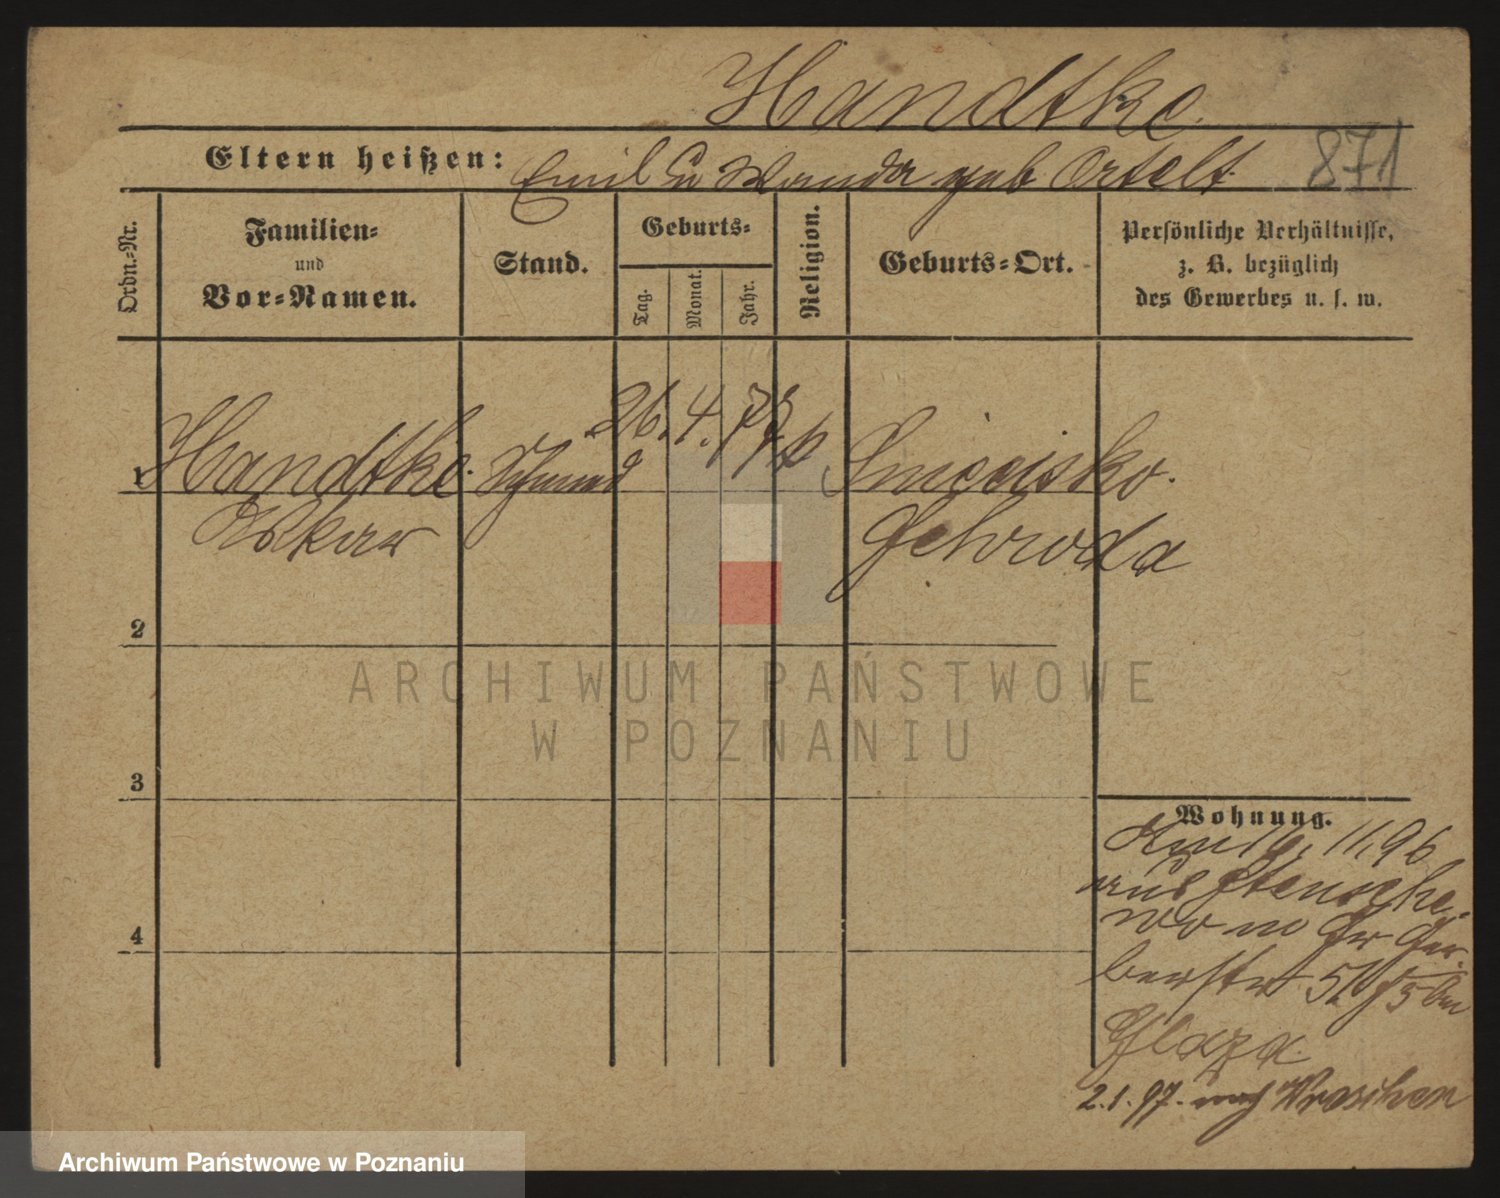 Handtke.
Eltern heißen: Emil u Wanda geb Ortelt. 871
Ordn.-Nr.
Familien-
und
Vor-Namen.
Stand.
Geburts-
Tag.
Monat.
Jahr.
Religion.
Geburts-Ort.
Persönliche Verhältnisse,
z. B. bezüglich
des Gewerbes u. s. w.
1 Handtke. Schmied 26. 4. 79
Oskar Schroda
2
3
4
ARCHIWUM PAŃSTWOWE
W POZNANIU
Wohnung.
16. 11. 96
aus
Gr Ger-
berstr 51 bei
2. 1. 97. nach Wreschen
Archiwum Państwowe w Poznaniu